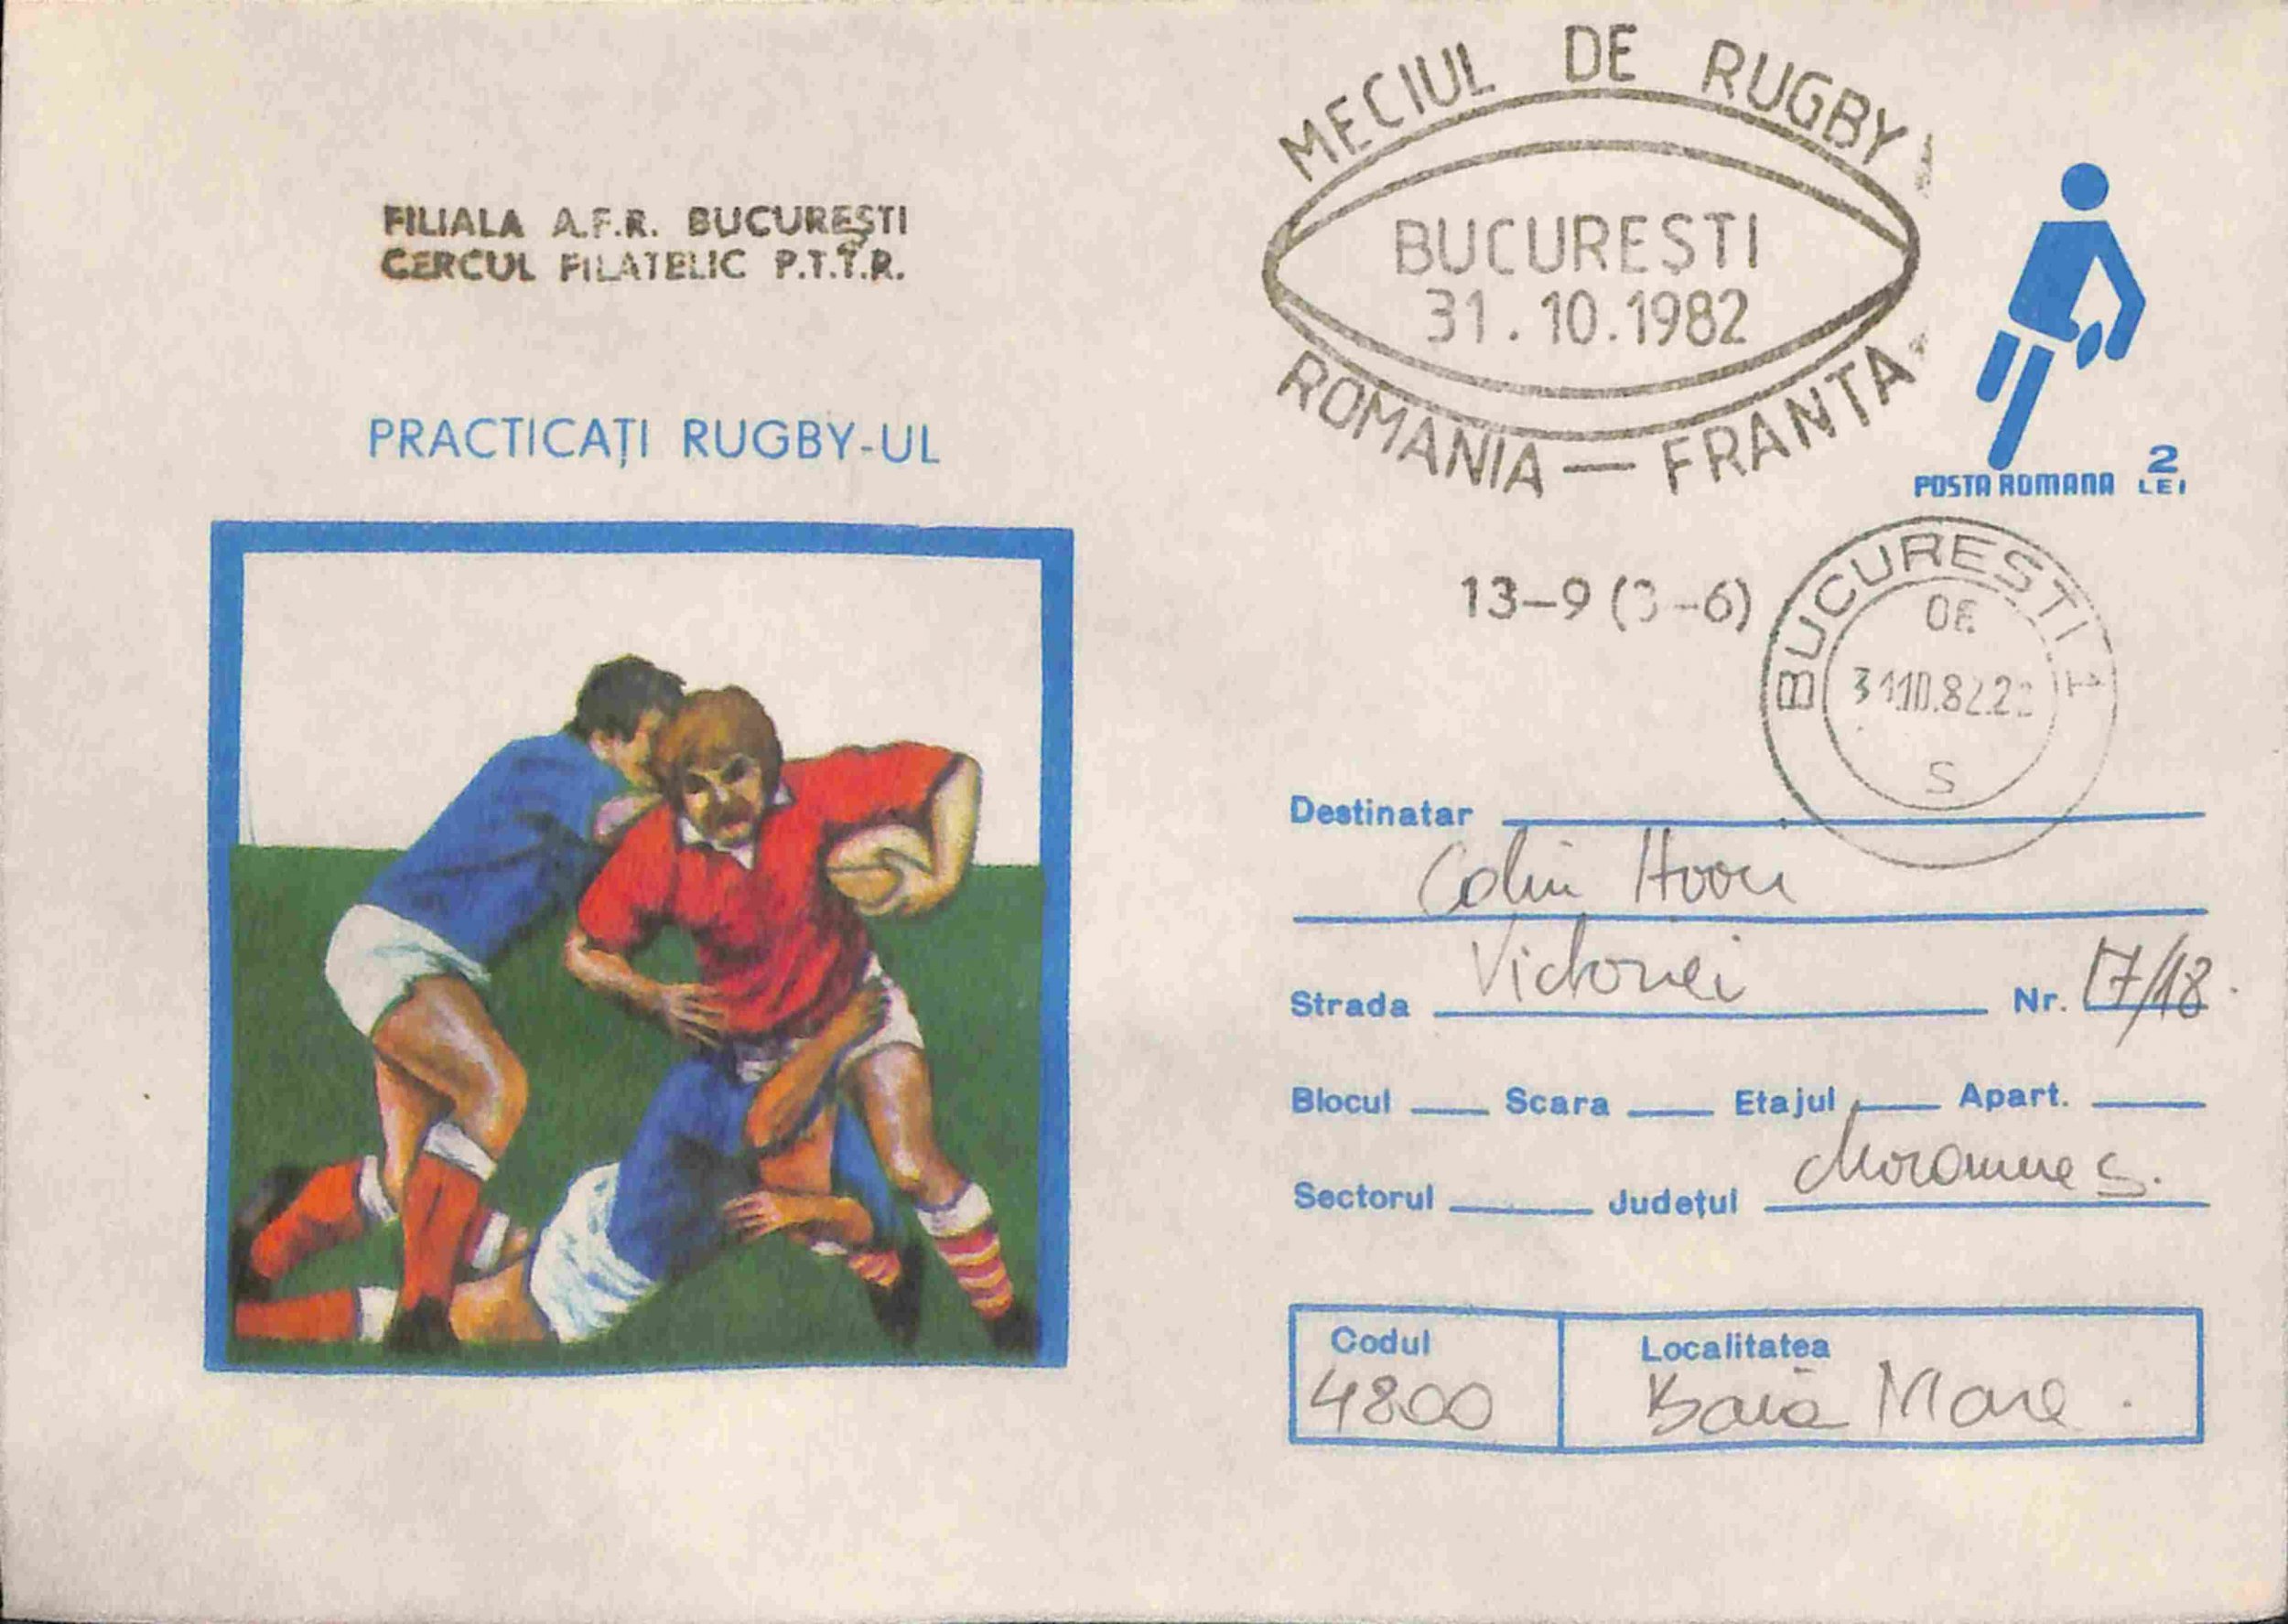 FILIALA A.F.R. BUCUREȘTI
CERCUL FILATELIC P.T.T.R.
PRACTICAȚI RUGBY-UL
MECIUL DE RUGBY
BUCUREȘTI
31.10.1982
ROMANIA — FRANTA
POSTA ROMANA 2 LEI
13-9 ( -6)
BUCURESTI 1
31.10.82.
S
Destinatar
Strada Victoriei Nr. 17/18
Blocul Scara Etajul Apart.
Sectorul Județul Maramureș.
Codul Localitatea
4800 Baia Mare